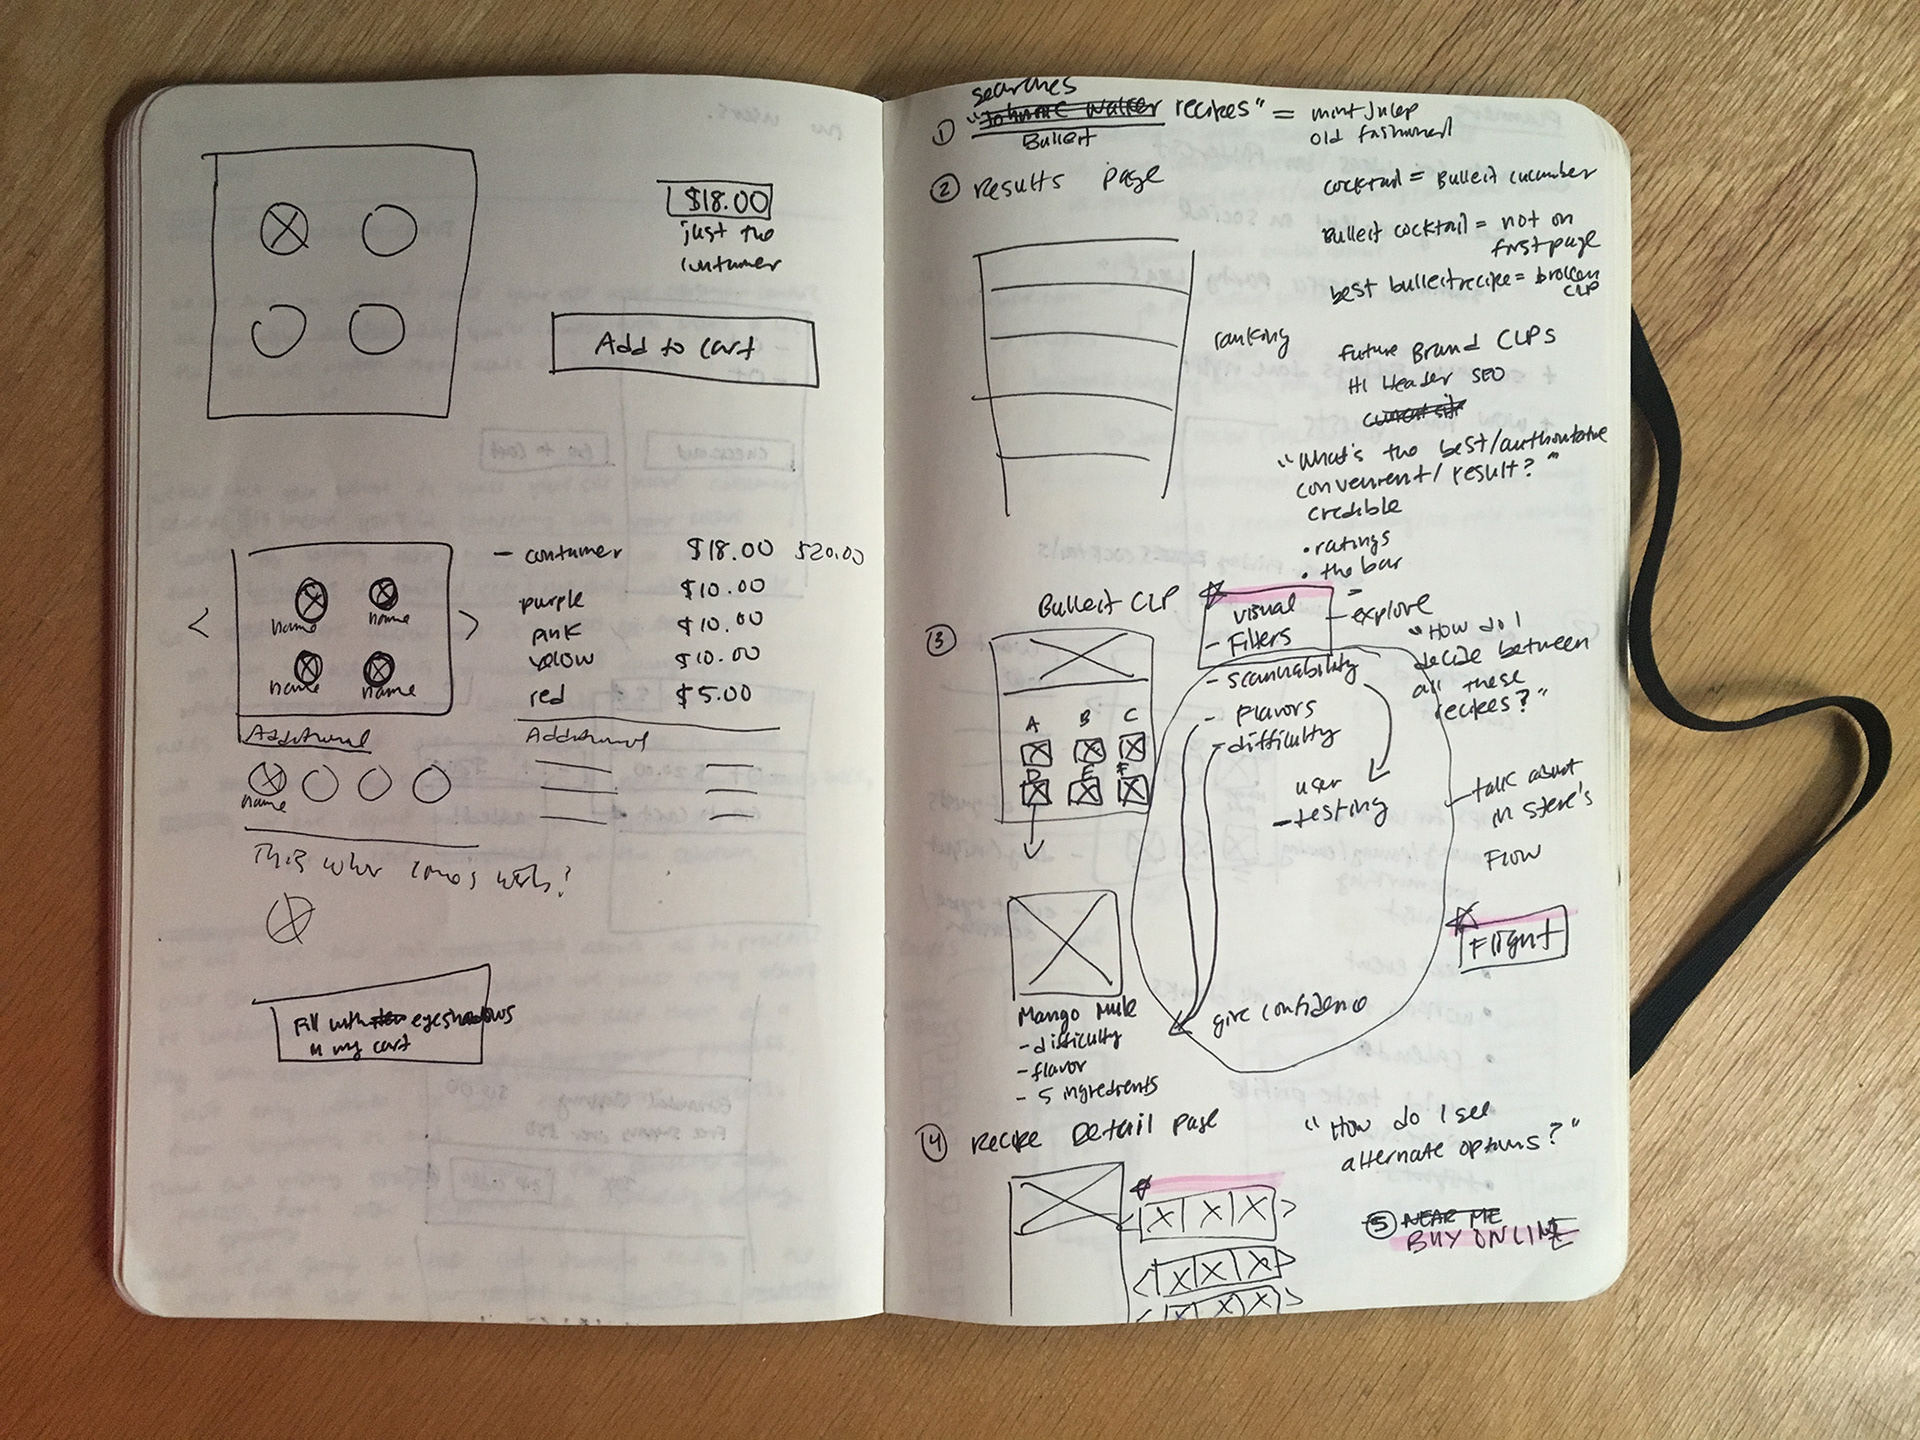 $18.00
just the
container
Add to cart
< >
name name
name name
- container $18.00 $20.00
purple $10.00
pink $10.00
yellow $10.00
red $5.00
Additional
name
Additional
This what comes with?
Fill with eyeshadows
in my cart
searches
① "Johnnie Walker recipes" = mint julep
Bulleit
old fashioned
② results page
cocktail = Bulleit cucumber
Bulleit cocktail = not on
first page
best bulleit recipe = broken
CLP
ranking
future Brand CLPs
H1 Header SEO
"What's the best/authoritative
convenient/result?"
credible
• ratings
• the bar
③ Bulleit CLP
A B C
D E F
visual
- Filters
- explore
- scannability
- flavors
- difficulty
"How do I
decide between
all these
recipes?"
user
- testing
- talk about
in Steve's
Flow
Flight
give confidence
Mango Mule
- difficulty
- flavor
- 5 ingredients
④ Recipe Detail page
"How do I see
alternate options?"
⑤ NEAR ME
BUY ONLINE